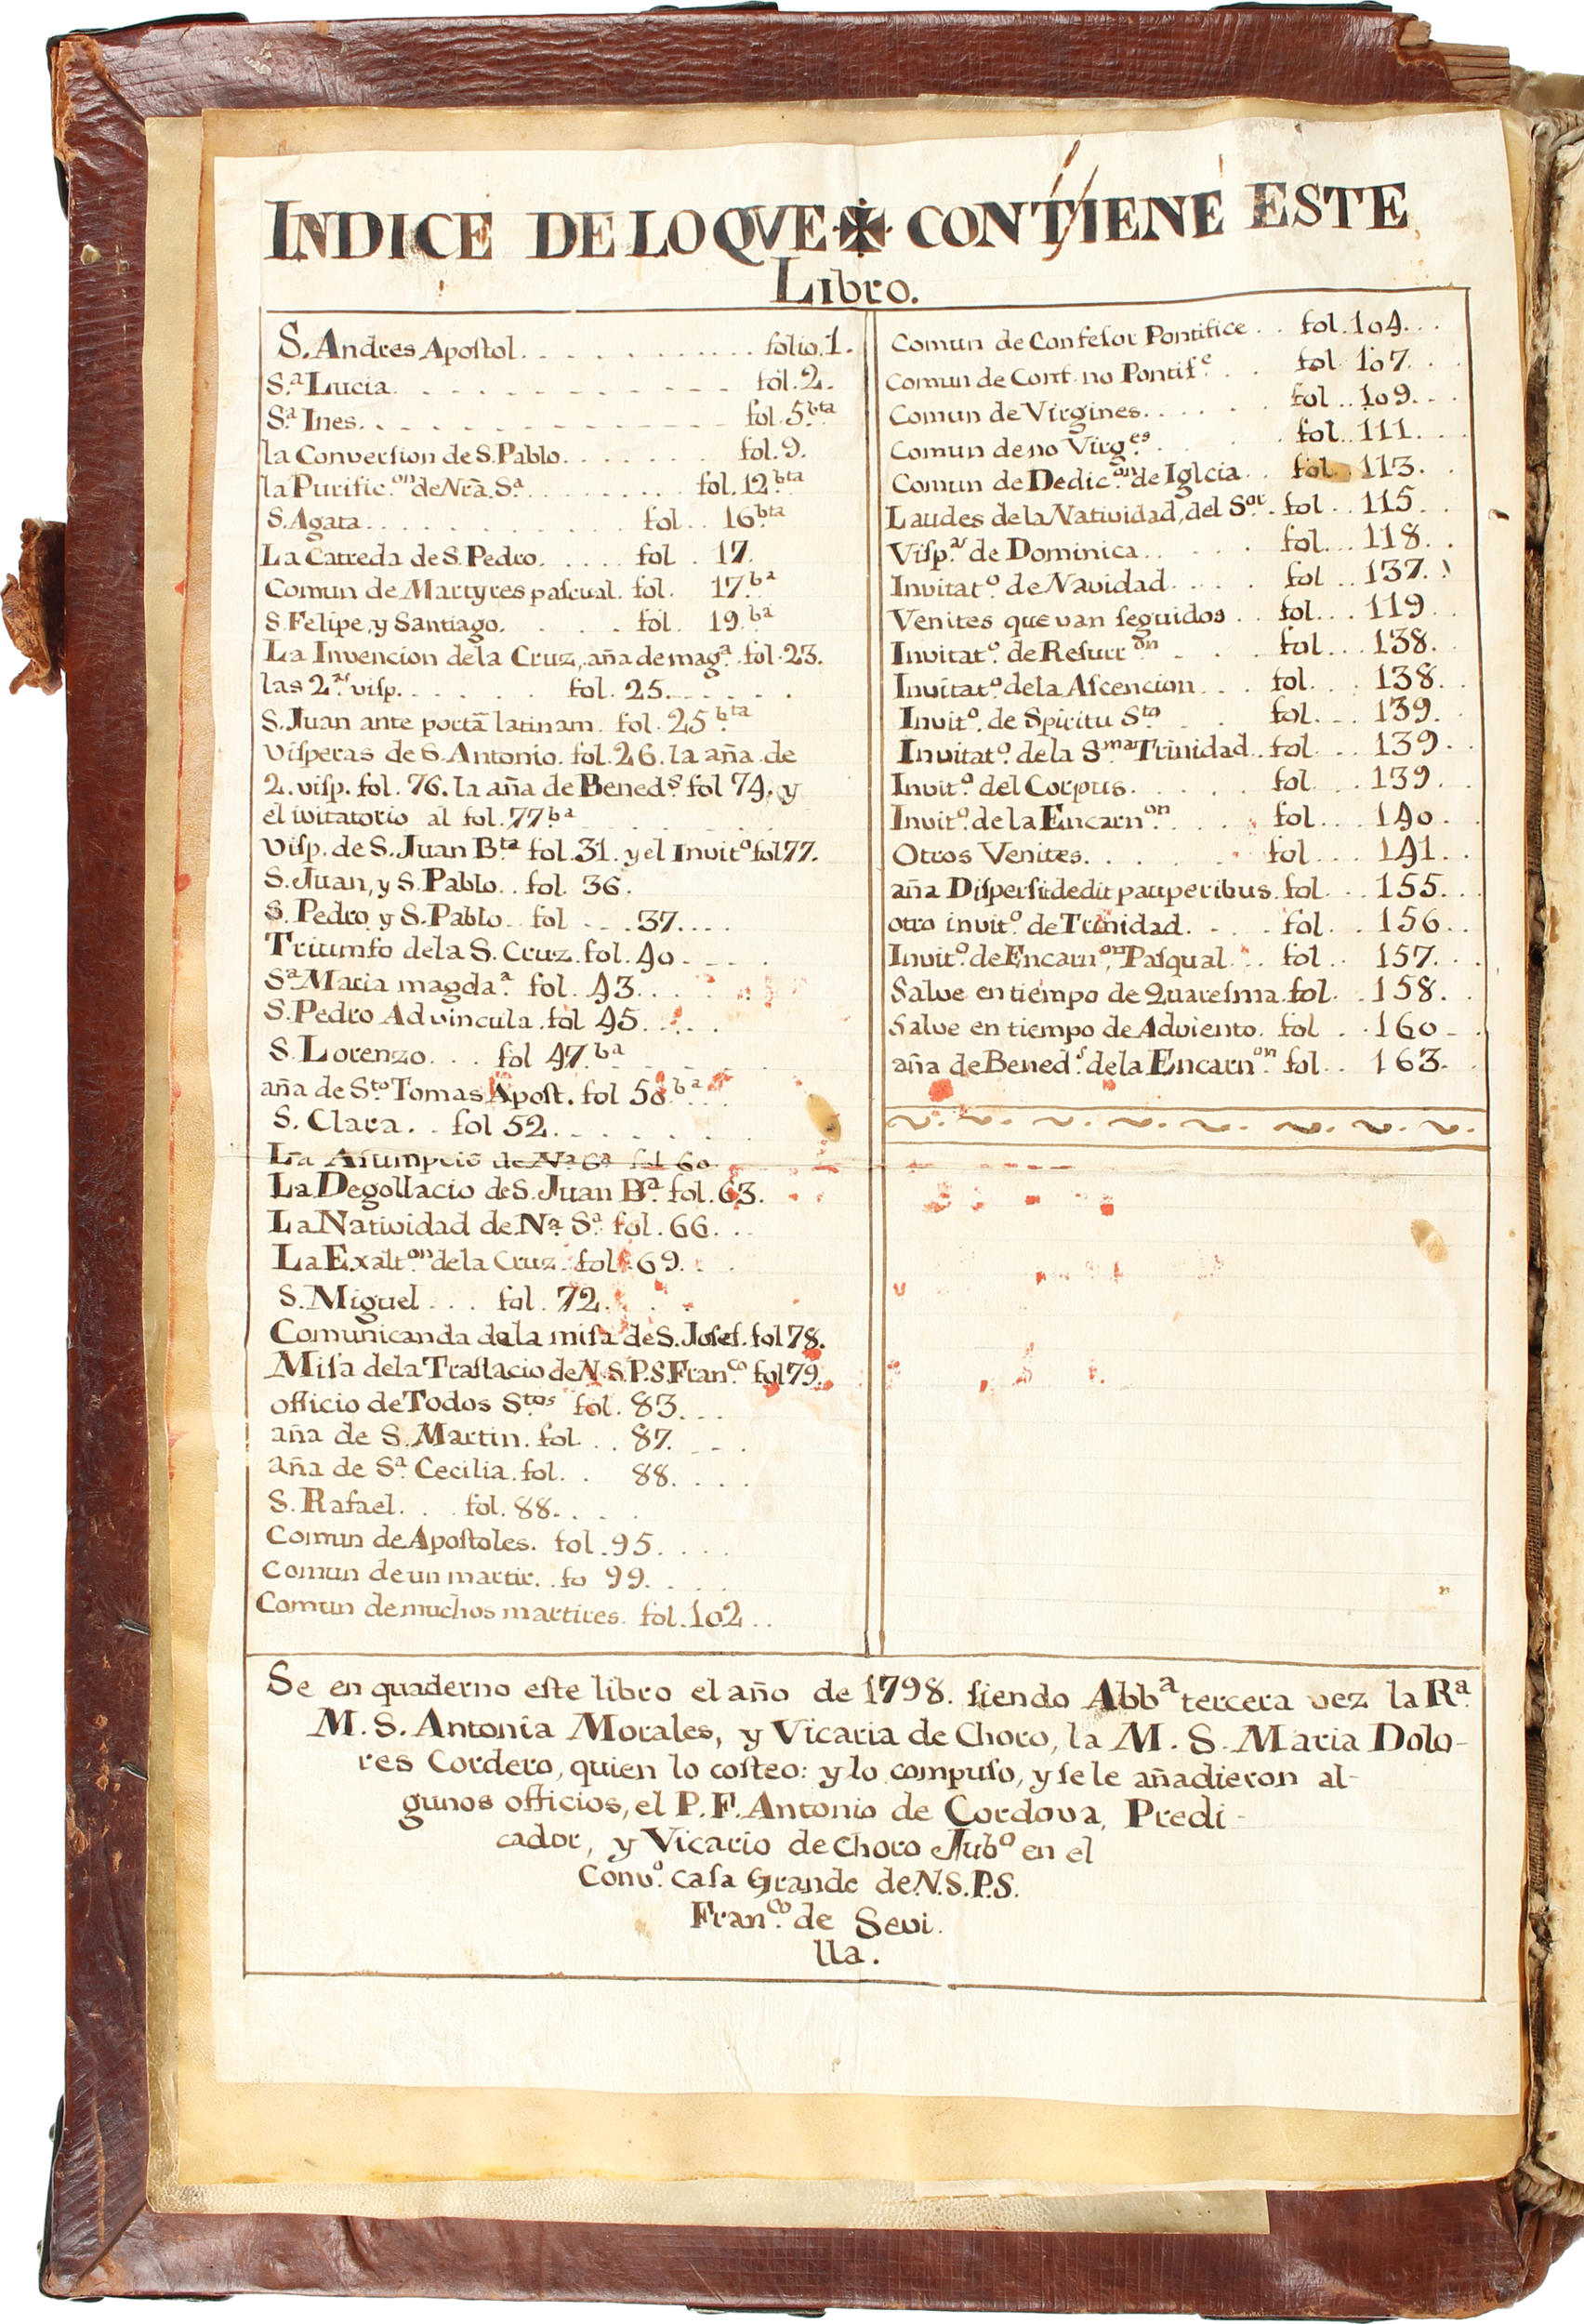 INDICE DE LO QVE ✠ CONTIENE ESTE
Libro.
S. Andres Apoſtol. . . . . . . . . . . . folio. 1.
S.ª Lucia. . . . . . . . . . . . fol. 2.
S.ª Ines. . . . . . . . . . . . . fol. 5.bta
la Converſion de S. Pablo. . . . . . . fol. 9.
la Purific.on de Nrã. S.ª . . . . . . . . fol. 12.bta
S. Agata. . . . . . . . . . fol. . 16bta
La Catreda de S. Pedro. . . . . . fol . 17.
Comun de Martyres paſcual. fol. 17.bª
S. Felipe, y Santiago. . . . . fol. 19.bª
La Invencion dela Cruz, aña de mag.ª fol. 23.
las 2.as viſp. . . . . . . fol. 25. . . . . .
S. Juan ante portã latinam. fol. 25bta
Viſperas de S. Antonio. fol. 26. la aña de
2. viſp. fol. 76. la aña de Bened.s fol 74. y
el ivitatorio al fol. 77.bª
Viſp. de S. Juan B.ta fol. 31. y el Invit.o fol 77.
S. Juan, y S. Pablo. . fol. 36.
S. Pedro y S. Pablo. . fol . . . 37. . . .
Triumfo dela S. Cruz. fol. 40 . . . .
S.ª Maria magda.ª fol. 43. . .
S. Pedro Ad vincula. fol 45. . . . .
S. Lorenzo. . . fol 47.bª
aña de S.to Tomas Apoſt. fol 50.bª . .
S. Clara. . fol 52. . . . . . .
La Aſumpciõ de Nª Sª fol 60
La Degollacio de S. Juan B.ª fol. 63.
La Natividad de N.ª S.ª fol. 66. . .
La Exalt.on dela Cruz. fol. 69. . .
S. Miguel . . . fol. 72. . . .
Comunicanda dela miſa de S. Joſef. fol 78.
Miſa dela Traſlacio de N. S. P. S. Fran.co fol 79.
officio de Todos S.tos fol. 83. . .
aña de S. Martin. fol. . . 87. . . .
aña de S.ª Cecilia. fol. . 88. . . .
S. Rafael. . . fol. 88. . . .
Comun de Apoſtoles. fol. 95. . . .
Comun de un martir. . fo 99. . . .
Comun de muchos martires. fol. 102 . .
Comun de Confeſor Pontifice . . fol. 104. . .
Comun de Conf. no Pontif.e . . fol. 107. . .
Comun de Virgines. . . . . . fol . . 109. . .
Comun de no Virg.es . . . fol. . 111. . .
Comun de Dedic.on de Igleia . . fol. 113. .
Laudes dela Natividad, del S.or . fol . . 115. .
Viſp.as de Dominica. . . . . fol. . . 118. .
Invitat.o de Navidad. . . . . fol . . 137. .
Venites que van ſeguidos . . fol. . . 119. .
Invitat.o de Reſurr.on . . . fol. . . 138. .
Invitat.o dela Aſcencion . . . fol. . . 138. .
Invit.o de Spiritu S.to . . fol. . . 139. .
Invitat.o dela S.ma Trinidad. . fol. . . 139. .
Invit.o del Corpus. . . . . . fol. . . 139. .
Invit.o de la Encarn.on . . . fol. . . 140 .
Otros Venites. . . . . . . fol. . . 141. .
aña Diſperſit dedit pauperibus. fol. . . 155. .
otro invit.o de Trinidad. . . . fol. . 156. .
Invit.o de Encarn.on, Paſqual . . fol . . 157. . .
Salve en tiempo de Quareſma. fol. . 158. .
Salve en tiempo de Adviento. fol . . 160 . .
aña de Bened.s dela Encarn.on fol. . 163. .
Se en quaderno eſte libro el año de 1798. ſiendo Abb.ª tercera vez la R.ª
M. S. Antonia Morales, y Vicaria de Choro, la M. S. Maria Dolo-
res Cordero, quien lo coſteo: y lo compuſo, y ſe le añadieron al-
gunos officios, el P. F. Antonio de Cordova, Predi-
cador, y Vicario de Choro Jub.o en el
Conv.o caſa Grande de N. S. P. S.
Fran.co de Sevi.
lla.